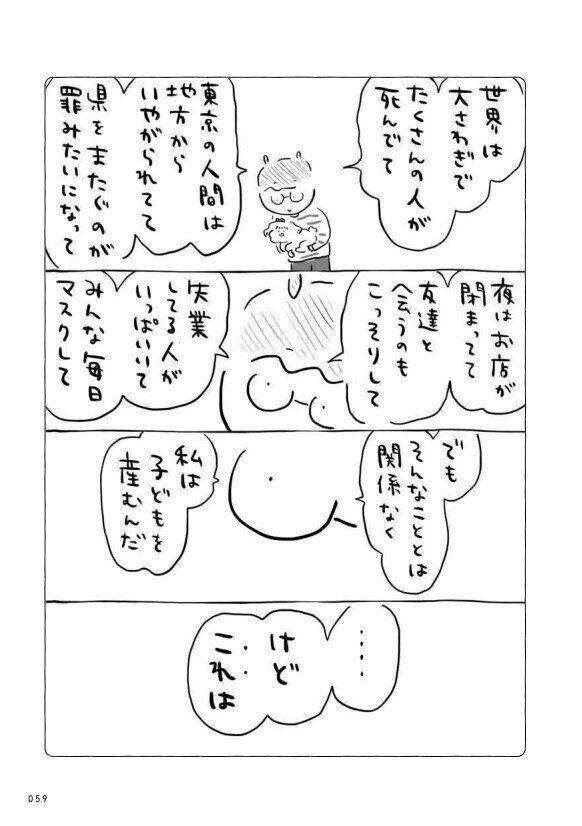 世界は
大さわぎで
たくさんの人が
死んでて
東京の人間は
地方から
いやがられてて
県をまたぐのが
罪みたいになって
夜はお店が
閉まってて
友達と
会うのも
こっそりして
失業
してる人が
いっぱいいて
みんな毎日
マスクして
でも
そんなこととは
関係なく
私は
子どもを
産むんだ
・・・・
けど
これは
059